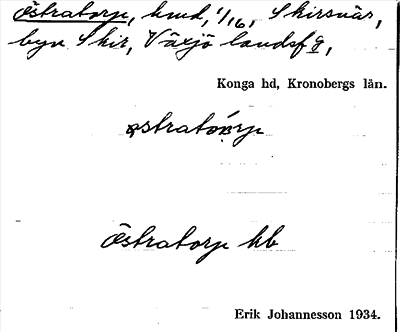 Östratorp, hmd, 1/16, Skirsnäs,
byn Skir, Växjö landsf g,
Konga hd, Kronobergs län.
östratorp
Östratorp kb
Erik Johannesson 1934.